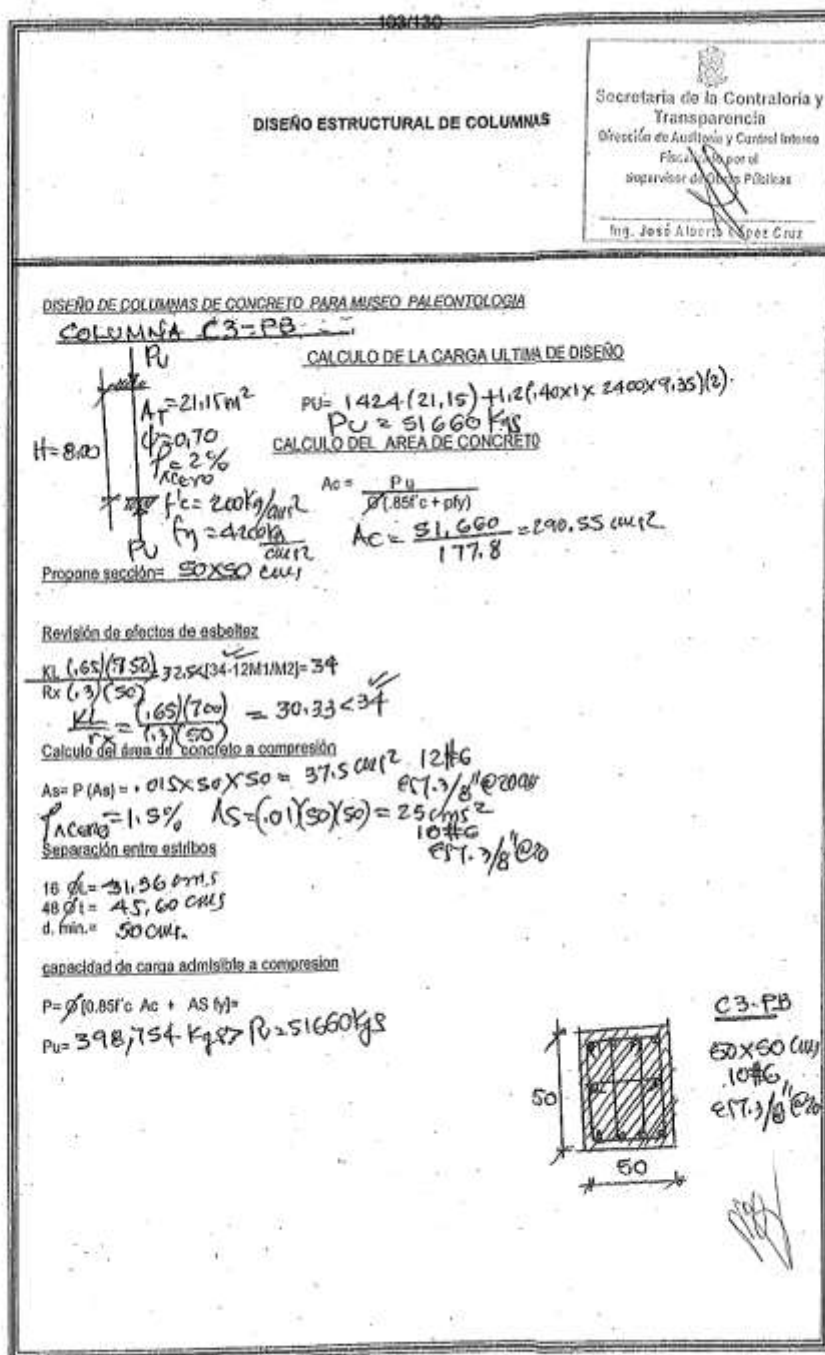 103/130
DISEÑO ESTRUCTURAL DE COLUMNAS
Secretaría de la Contraloría y
Transparencia
Dirección de Auditoría y Control Interno
Fiscalizado por el
Supervisor de Obras Públicas
Ing. José Alberto López Cruz
DISEÑO DE COLUMNAS DE CONCRETO PARA MUSEO PALEONTOLOGIA
COLUMNA C3-PB
PU
CALCULO DE LA CARGA ULTIMA DE DISEÑO
AT=21.15m²
PU= 1424(21.15)+1.2(.40x1x2400x9.35)(2).
PU = 51660 Kgs
H=8.00
φ=0.70
CALCULO DEL AREA DE CONCRETO
ρ=2%
ACERO
f'c=200kg/cm²
Ac = Pu / Ø(.85f'c + pfy)
fy=4200kg/cm²
AC = 51,660 / 177.8 = 290.55 cms²
PU
Propone sección= 50x50 cms
Revisión de efectos de esbeltez
KL (.65)(750) 32.5<[34-12M1/M2]= 34
Rx (.3)(50)
KL/rx = (.65)(700)/(.3)(50) = 30.33<34
Calculo del área de concreto a compresión
As= P (As) = .015x50x50 = 37.5 cms² 12#6
EST. 3/8"@20
ρ ACERO=1.5% AS=(.01)(50)(50) = 25cms²
10#6
EST. 3/8"@20
Separación entre estribos
16 ØL= 31.36 cms
48 Øt= 45.60 cms
d. min.= 50 cms.
capacidad de carga admisible a compresion
P= Ø[0.85f'c Ac + AS fy]=
Pu= 398,754 Kgs> PU=51660 Kgs
C3-PB
50x50 cms
10#6
EST. 3/8"@20
50
50